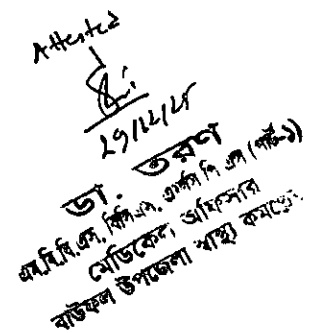 Attested
29/12/25
ডা. তরুণ
এম,বি,বি,এস, বিসিএস, এফসিপিএস (পার্ট-১)
মেডিকেল অফিসার
বাউফল উপজেলা স্বাস্থ্য কমপ্লেক্স